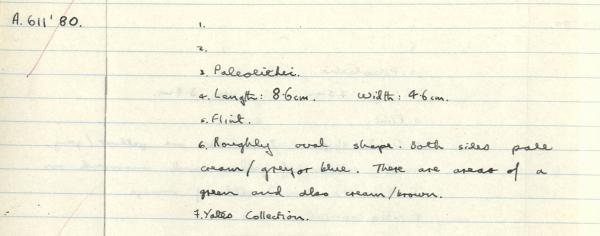 A.611'80.
1.
2.
3. Paleolithic.
4. Length: 8.6cm. Width: 4.6cm.
5. Flint.
6. Roughly oval shape. Both sides pale
cream/grey or blue. There are areas of a
green and also cream/brown.
7. Yates Collection.